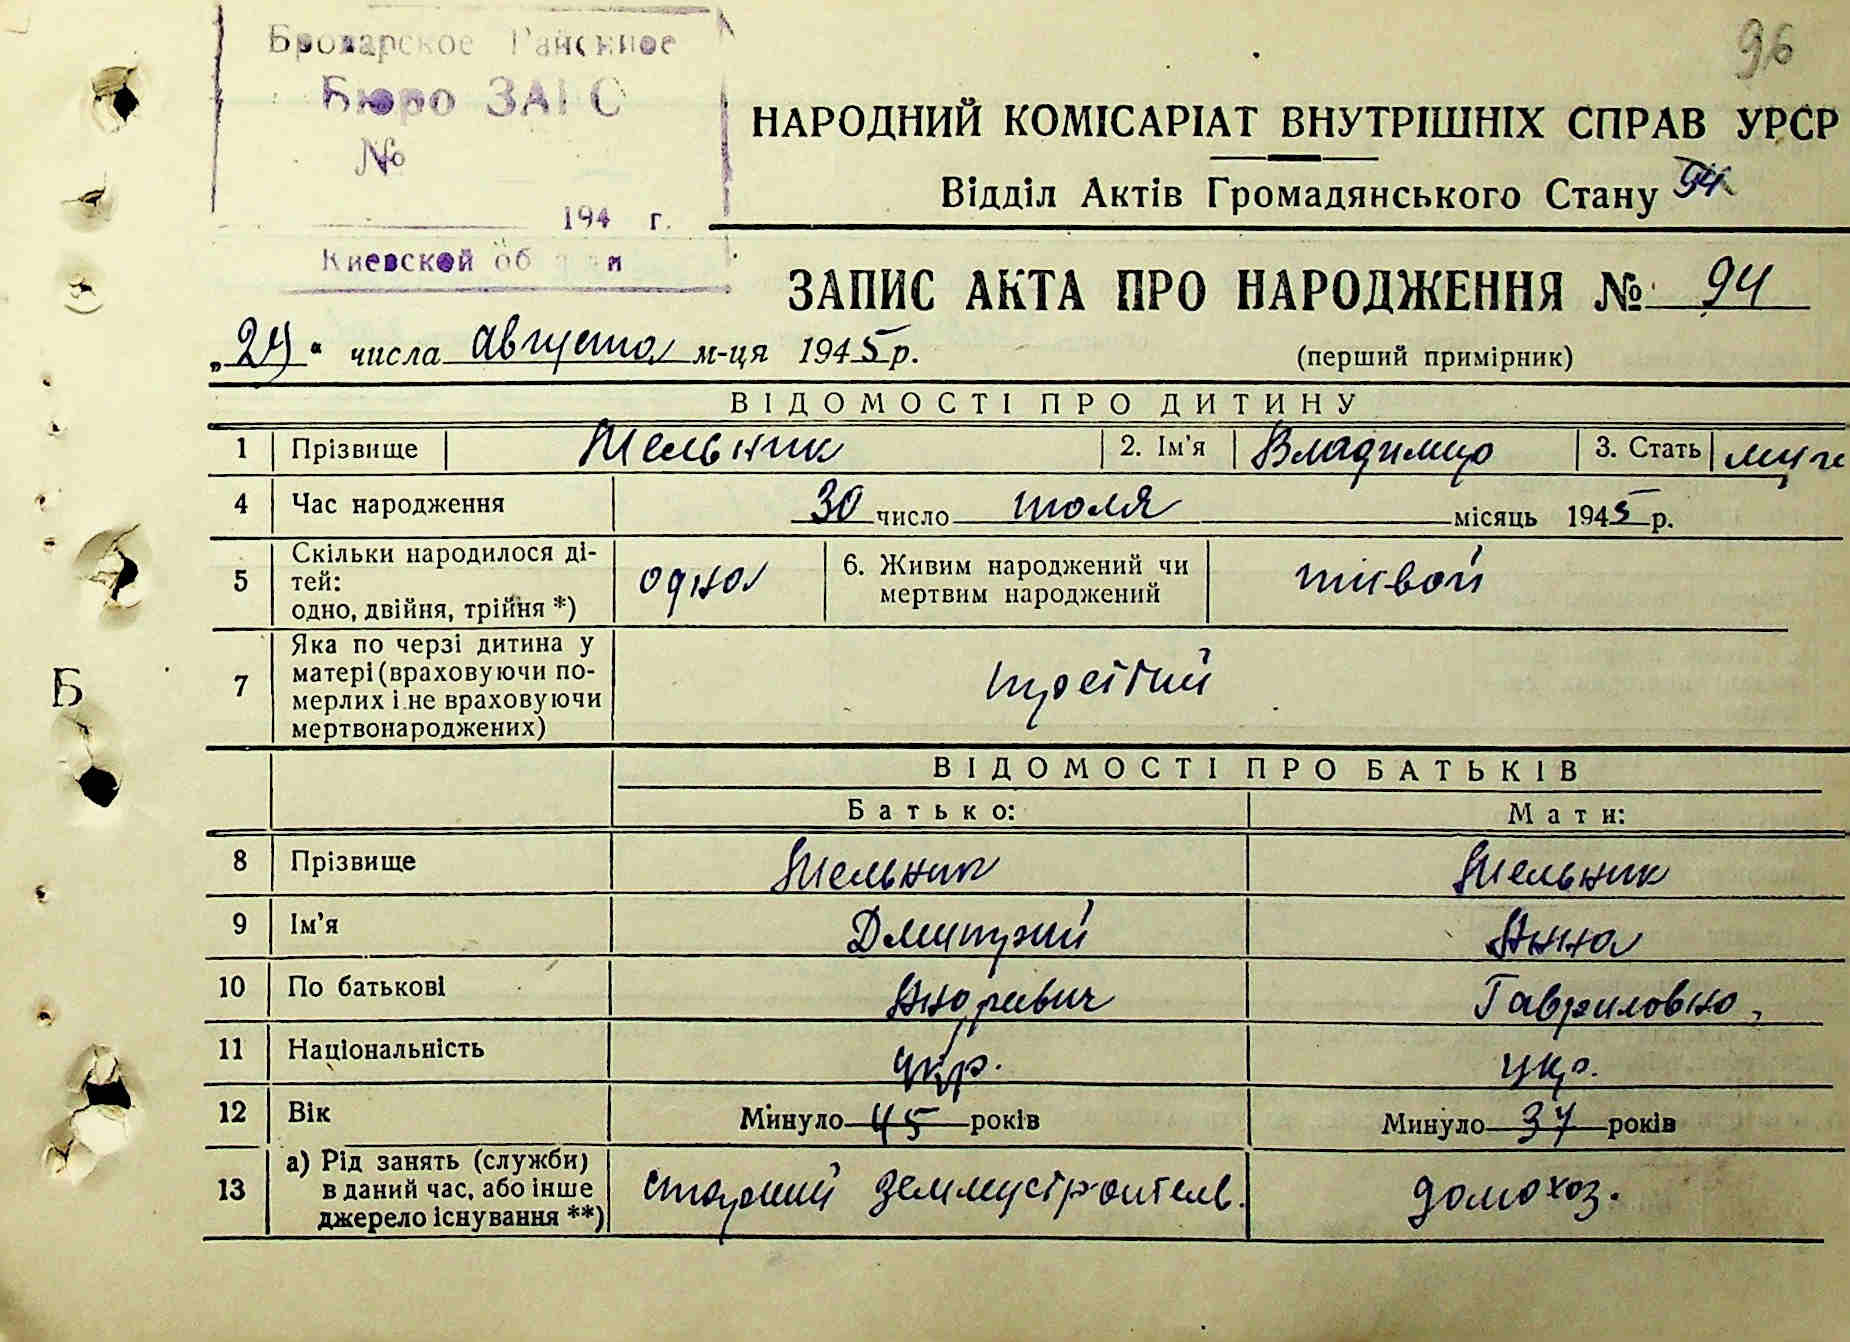 96
Броварское Районное
Бюро ЗАГС
№
194 г.
Киевской области
НАРОДНИЙ КОМІСАРІАТ ВНУТРІШНІХ СПРАВ УРСР
Відділ Актів Громадянського Стану 94
ЗАПИС АКТА ПРО НАРОДЖЕННЯ № 94
„24“ числа августа м-ця 1945 р.
(перший примірник)
ВІДОМОСТІ ПРО ДИТИНУ
1 Прізвище Мельник 2. Ім'я Владимир 3. Стать муж
4 Час народження 30 число июля місяць 1945 р.
5 Скільки народилося ді-
тей:
одно, двійня, трійня *) одно 6. Живим народжений чи
мертвим народжений живой
7 Яка по черзі дитина у
матері (враховуючи по-
мерлих і не враховуючи
мертвонароджених) третий
Б
ВІДОМОСТІ ПРО БАТЬКІВ
Батько: Мати:
8 Прізвище Мельник Мельник
9 Ім'я Дмитрий Анна
10 По батькові Андреевич Гавриловна
11 Національність укр. укр.
12 Вік Минуло 45 років Минуло 37 років
13 а) Рід занять (служби)
в даний час, або інше
джерело існування **) старший землеустроитель. домохоз.